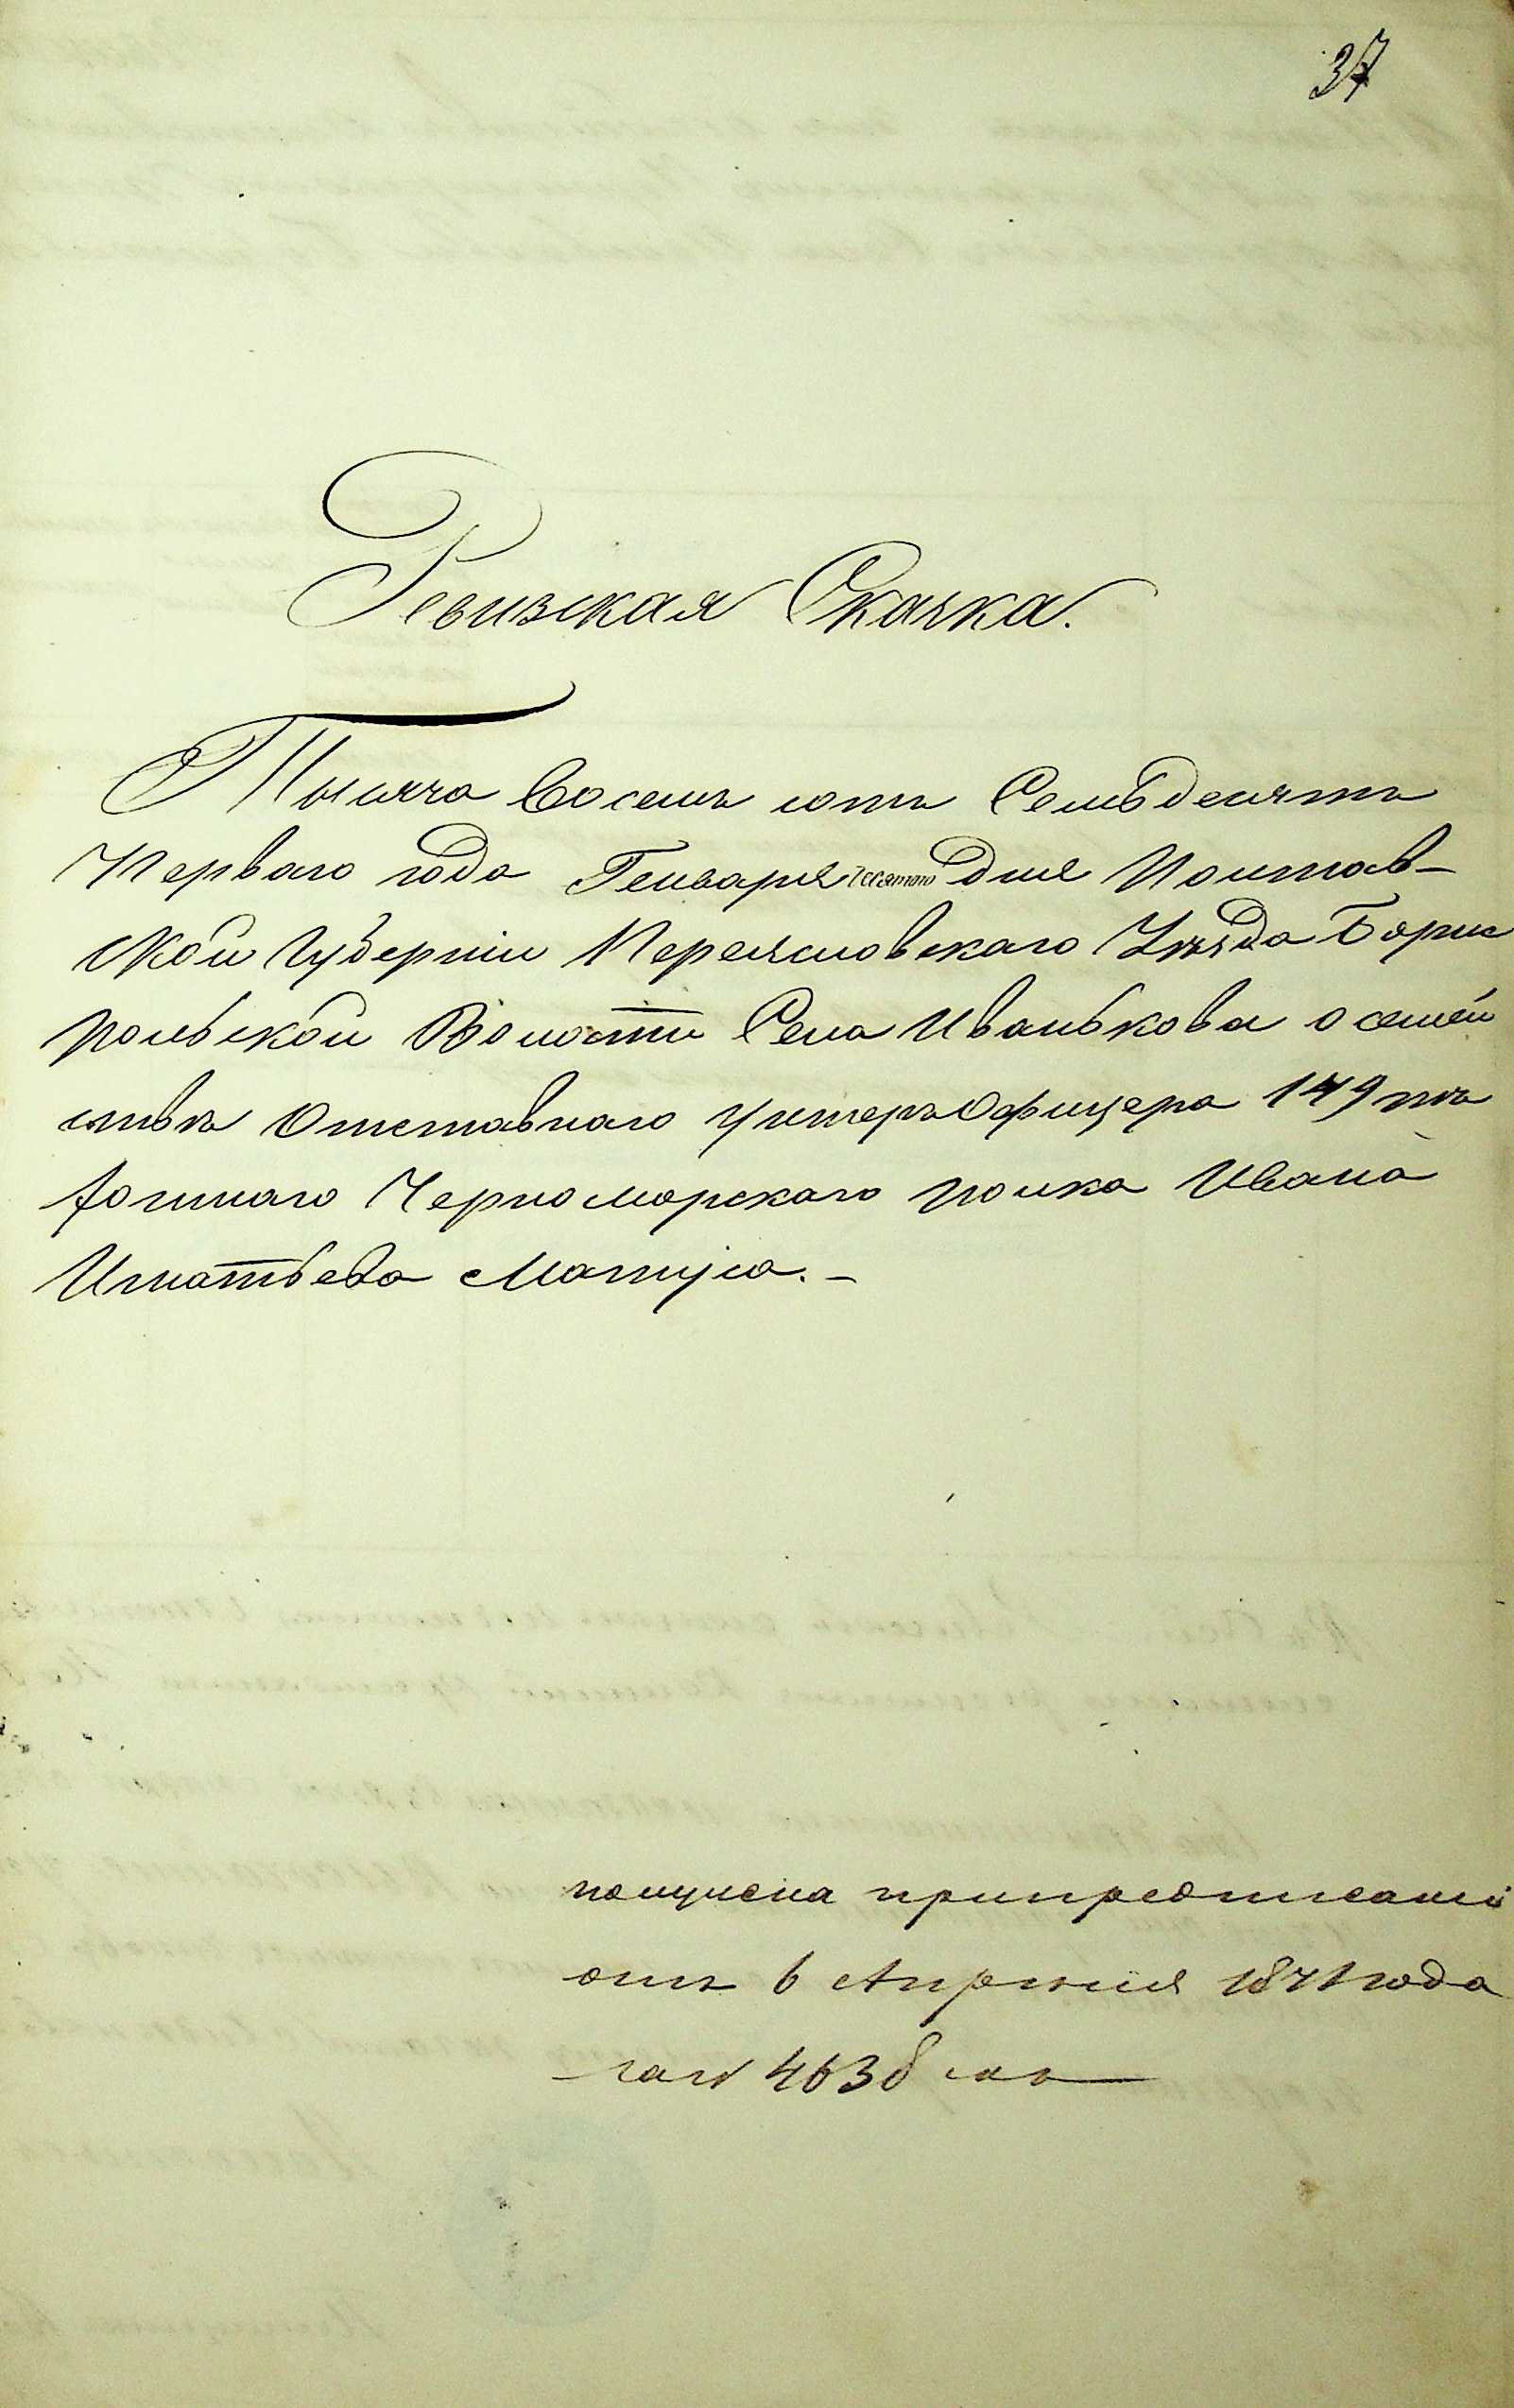 37
Ревизская Скачка.
Тысяча Восемь сотъ Семьдесятъ
Перваго года Генваря десятого дня Полтав-
ской Губерніи Переясловскаго Уѣзда Борис
польской Волости Села Иванькова о семей
ствѣ Отставнаго Унтеръ Офицера 149 пѣ
хотнаго Черноморскаго полка Ивана
Игнатьева Мацуна.-
получена при предписаніи
отъ 6 Апрѣля 1871 года
за № 4636